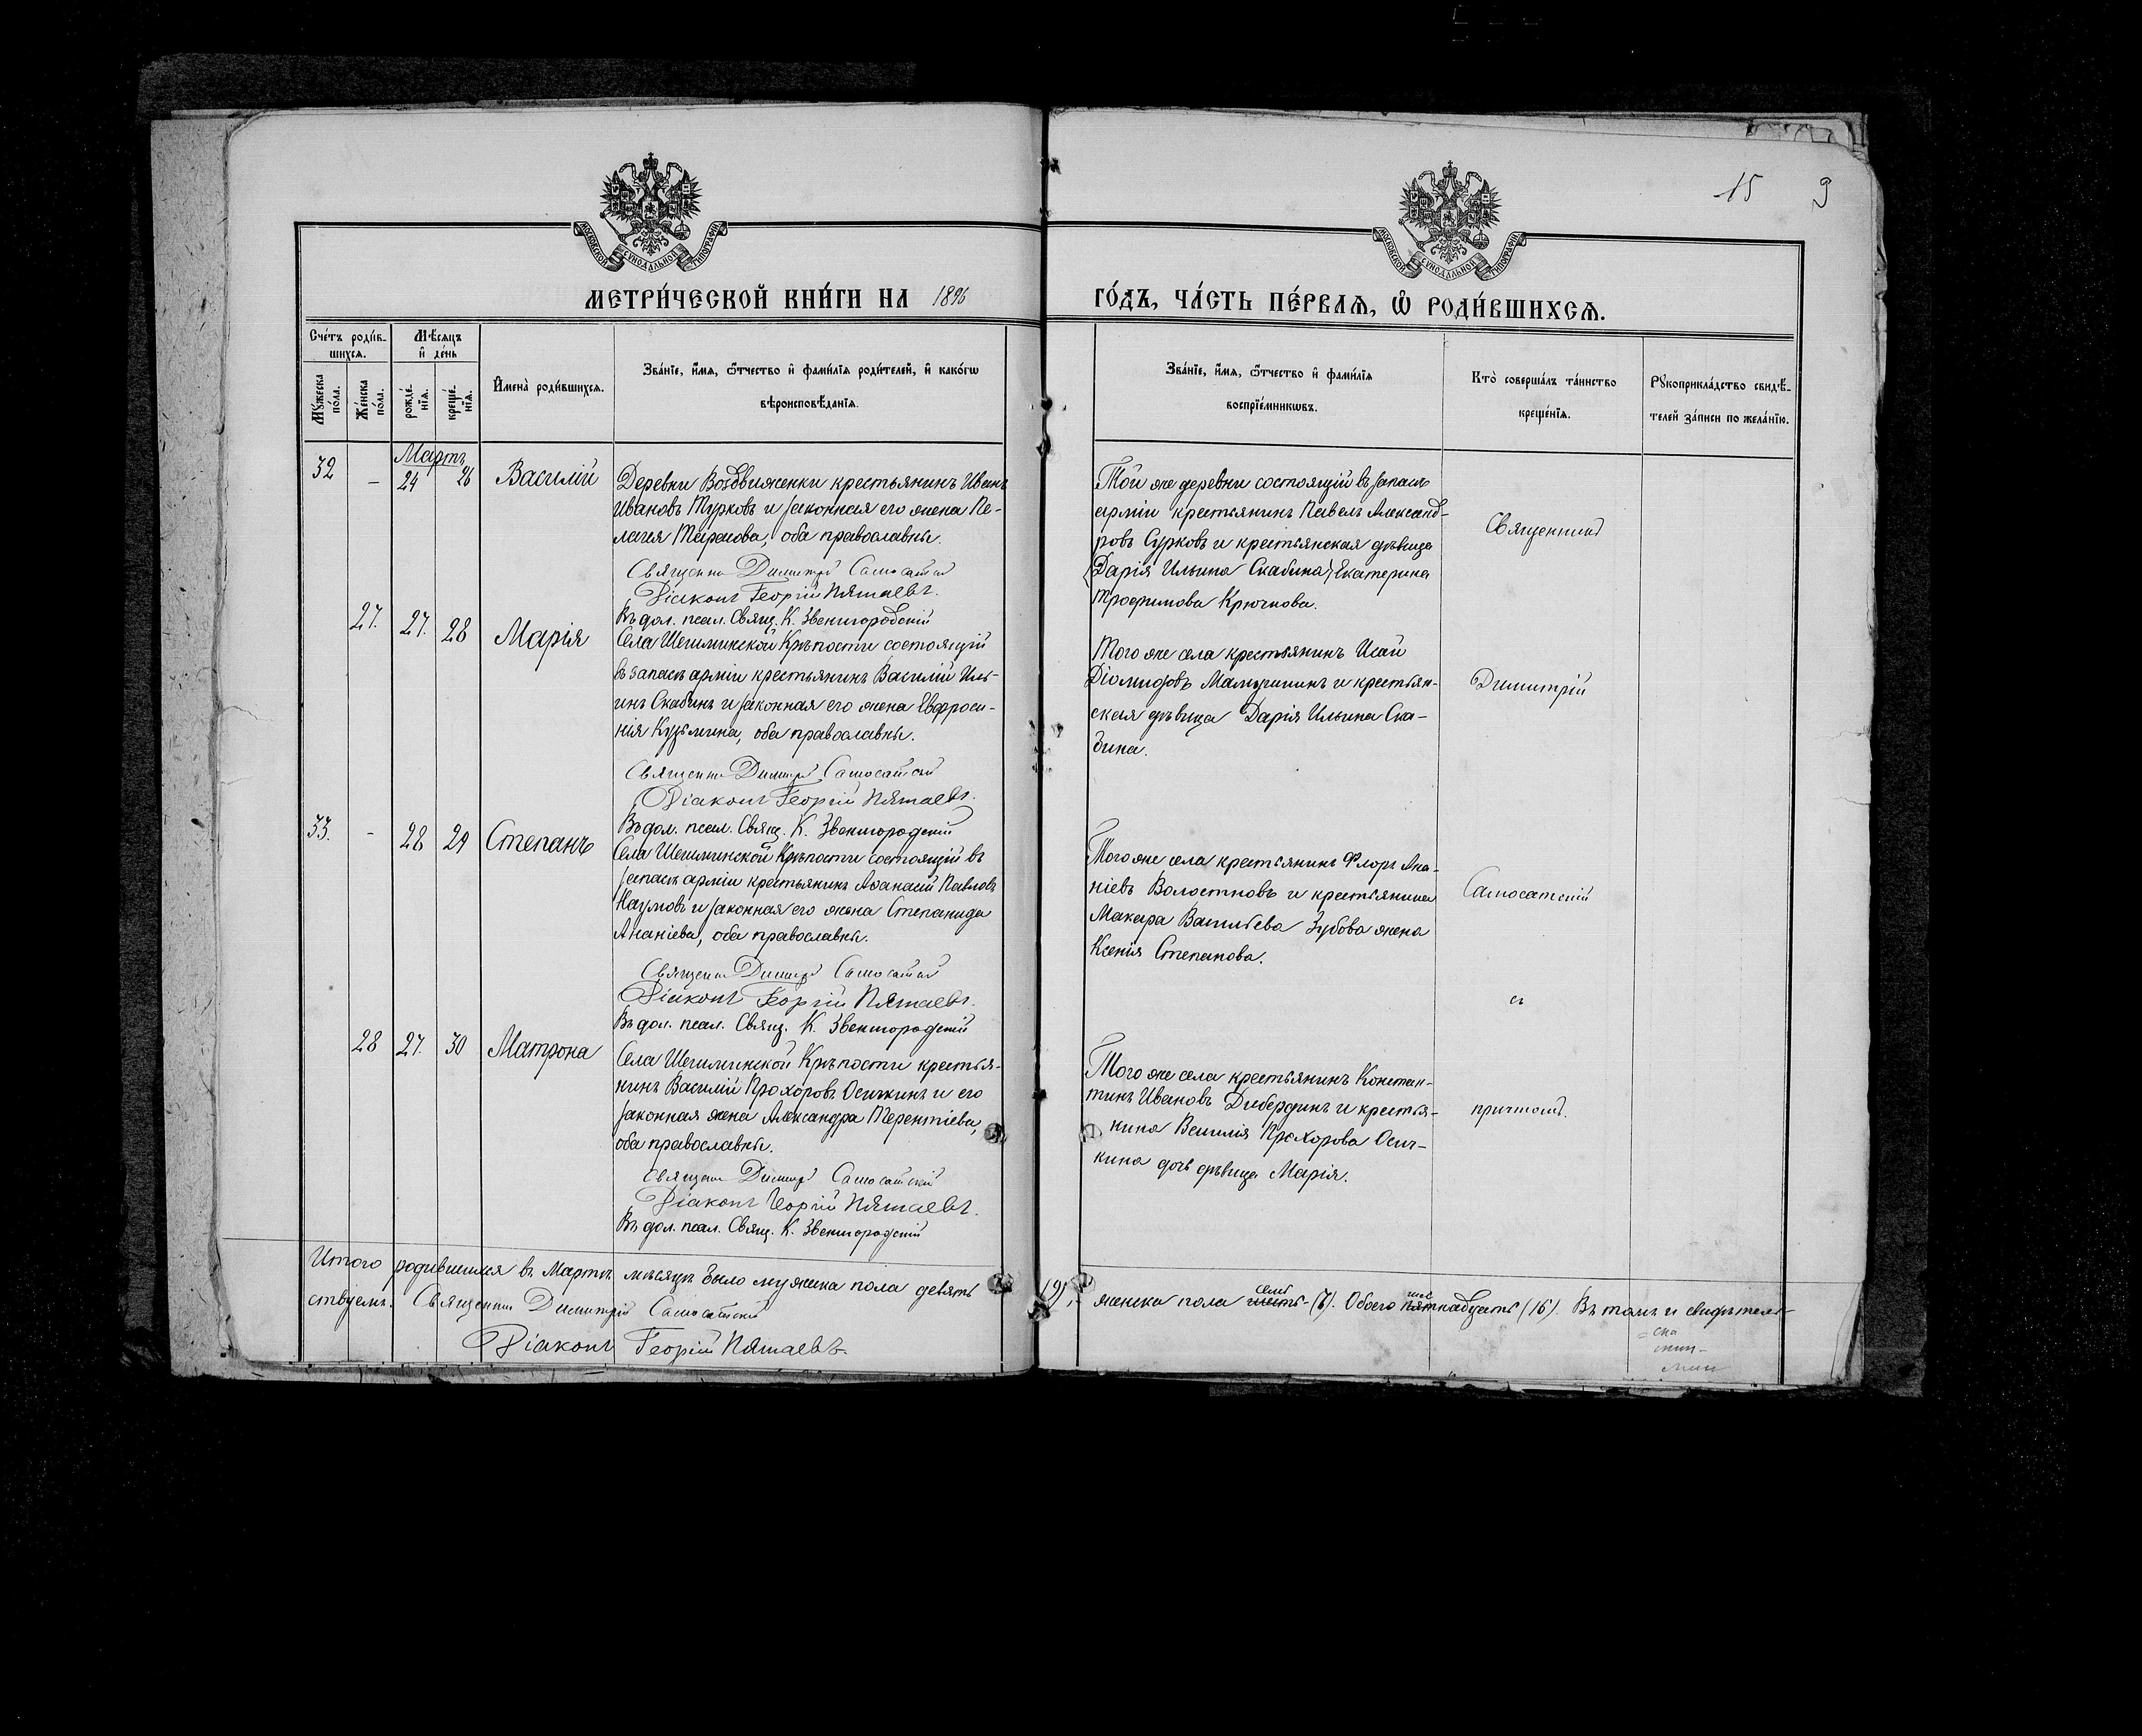 15 9
МОСКОВСКОЙ СѴНОДАЛЬНОЙ ТИПОГРАФІИ
МОСКОВСКОЙ СѴНОДАЛЬНОЙ ТИПОГРАФІИ
МЕТРИ́ЧЕСКОЙ КНИ́ГИ НА 1896 ГО́ДЪ, ЧА́СТЬ ПЕ́РВАѦ, Ѡ РОДИ́ВШИХСѦ.
Сче́тъ роди́в-
шихсѧ.
Мѣ́сѧцъ
и҆ де́нь
Мꙋ́жеска по́ла.
Же́нска по́ла.
рожде́-
нїѧ.
креще́-
нїѧ.
И҆мена̀ роди́вшихсѧ.
Зва́нїе, и҆́мѧ, ѻ҆́тчество и҆ фами́лїѧ роди́телей, и҆ како́гѡ
вѣроисповѣ́данїѧ.
Зва́нїе, и҆́мѧ, ѻ҆́тчество и҆ фами́лїѧ
воспрїе́мникѡвъ.
Кто̀ соверша́лъ та́инство
креще́нїѧ.
Рꙋкоприкла́дство свидѣ́-
телей за́писи по жела́нїю.
Мартъ
32 - 24 26 Василій
Деревни Воздвиженки крестьянинъ Иванъ
Ивановъ Турковъ и законная его жена Пе-
лагея Тарасова, оба православны.
Священникъ Димитрій Самосатскій
Діаконъ Георгій Пятаевъ.
Въ дол. псал. Свящ. К. Звенигородскій
Той же деревни состоящій въ запасѣ
арміи крестьянинъ Павелъ Александ-
ровъ Сурковъ и крестьянская дѣвица
(Дарія Ильина Скабина) Екатерина
Трофимова Крючкова.
Священникъ
27. 27. 28 Марія
Села Шешминской Крѣпости состоящій
въ запасѣ арміи крестьянинъ Василій Иль-
инъ Скабинъ и законная его жена Евфроси-
нія Кузьмина, оба православны.
Священникъ Димитрій Самосатскій
Діаконъ Георгій Пятаевъ.
Въ дол. псал. Свящ. К. Звенигородскій
Того же села крестьянинъ Исай
Діомидовъ и крестьян-
ская дѣвица Дарія Ильина Ска-
бина.
Димитрій
33. - 28 29 Степанъ
Села Шешминской Крѣпости состоящій въ
запасѣ арміи крестьянинъ Аѳанасій Павловъ
Наумовъ и законная его жена Степанида
Ананіева, оба православны.
Священникъ Димитрій Самосатскій
Діаконъ Георгій Пятаевъ.
Въ дол. псал. Свящ. К. Звенигородскій
Того же села крестьянинъ Флоръ Ана-
ніевъ Волостновъ и крестьянина
Макара Васильева Зубова жена
Ксенія Степанова.
Самосатскій
съ
28 27. 30 Матрона
Села Шешминской Крѣпости крестья-
нинъ Василій Прохоровъ Осичкинъ и его
законная жена Александра Терентіева,
оба православны.
Священникъ Димитрій Самосатскій
Діаконъ Георгій Пятаевъ.
Въ дол. псал. Свящ. К. Звенигородскій
Того же села крестьянинъ Констан-
тинъ Ивановъ Дибердинъ и крестья-
нина Василія Прохорова Осич-
кина дочь дѣвица Марія.
причтомъ.
Итого родившихся въ Мартѣ мѣсяцѣ было мужска пола девять (9), женска пола шесть семь - (7). Обоего пятнадцать шес (16). Въ томъ и свидѣтель-
ствуемъ. Священникъ Димитрій Самосатскій
Діаконъ Георгій Пятаевъ.